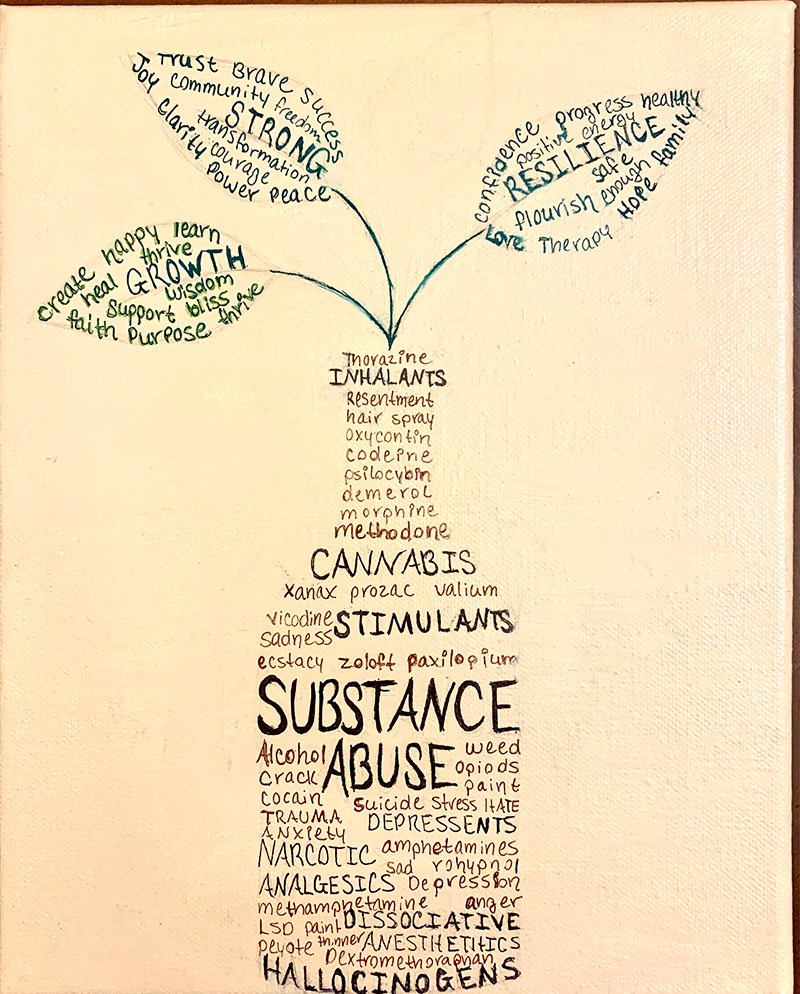 Trust Brave Success
Joy community freedom
STRONG
transformation
clarity courage
Power peace
confidence progress healthy
positive energy
RESILIENCE
safe family
flourish enough HOPE
Love Therapy
create happy learn
thrive
heal GROWTH
wisdom
Support bliss thrive
faith Purpose
Thorazine
INHALANTS
Resentment
hair spray
oxycontin
codeine
psilocybin
demerol
morphine
methodone
CANNABIS
xanax prozac valium
vicodine STIMULANTS
sadness
ecstacy zoloft paxilopium
SUBSTANCE
Alcohol ABUSE weed
Crack opiods
paint
Cocain Suicide Stress HATE
TRAUMA DEPRESSENTS
ANxiety
NARCOTIC amphetamines
sad rohypnol
ANALGESICS Depression
methamphetamine anger
LSD paint DISSOCIATIVE
peyote thinner ANESTHETITICS
Dextromethoraphan
HALLOCINOGENS